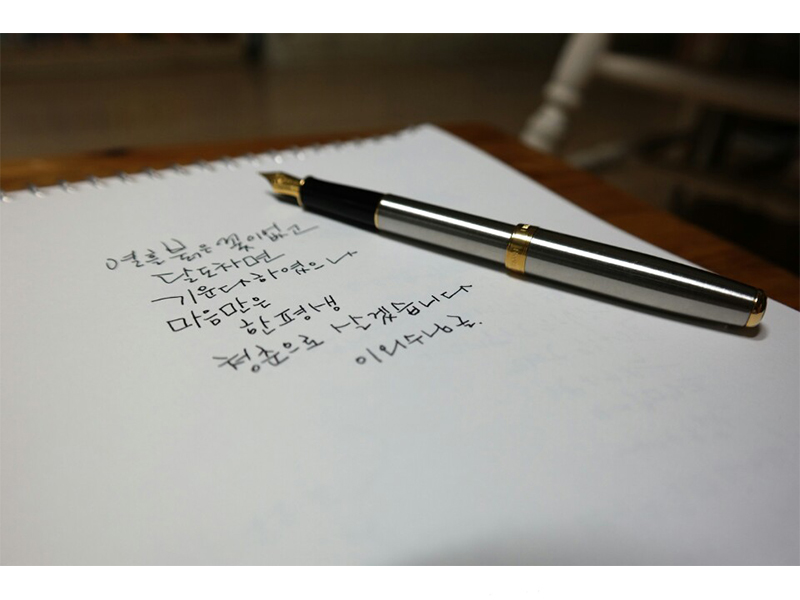 열흘 붉은 꽃이 없고
달도 차면
기운다 하였으나
마음만은 한평생
청춘으로 살겠습니다
이외수